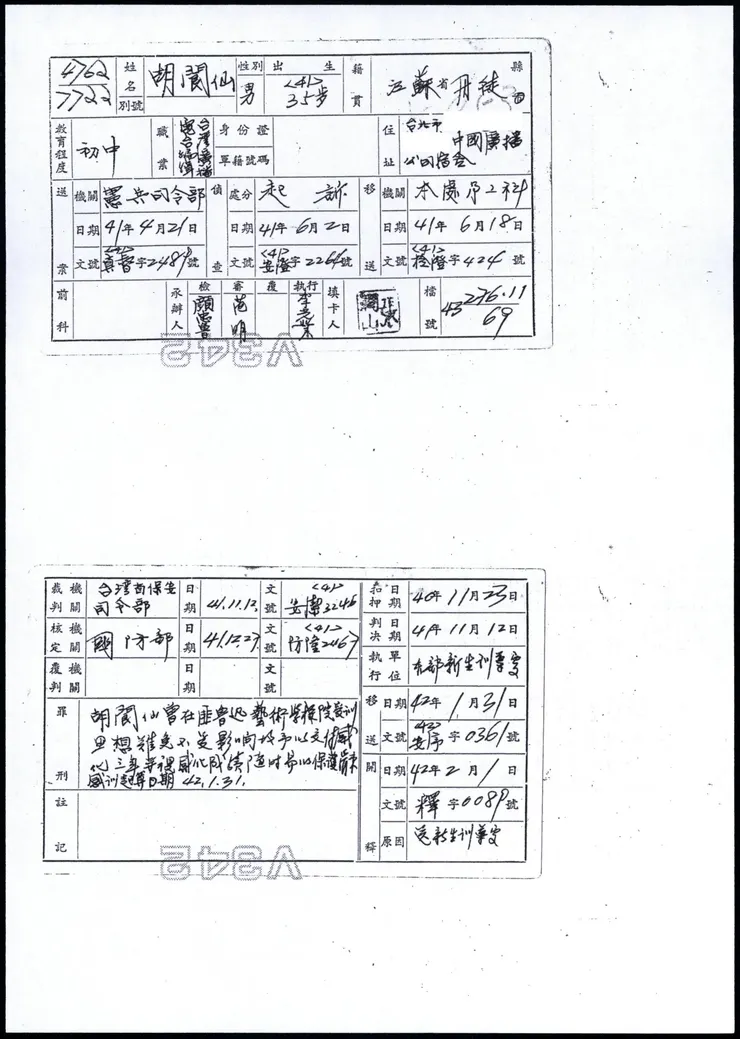 4762
7722
姓名
別號
胡閬仙
性別
男
出生
<41>
35歲
籍貫
江蘇省丹徒縣市
教育程度
初中
職業
台灣廣播
電台編輯
身份證
單籍號碼
住址
台北市
中國廣播
公司宿舍
送案
機關
憲兵司令部
日期
41年4月21日
文號
<41>
真督字2489號
偵查
處分
起訴
日期
41年6月2日
文號
<41>
安澄字2266號
移送
機關
本處第2科
日期
41年6月18日
文號
<41>
檢澄字424號
前科
承辦人
檢
顏忠魯
審
范明
覆
執行
填卡人
檔號
43
276.11
69
V342
裁判機關
台灣省保安
司令部
日期
41.11.12.
文號
<41>
安潔3246
核定機關
國防部
日期
41.12.27.
文號
<41>
防隆2467
覆判機關
日期
文號
罪刑
胡閬仙曾在匪魯迅藝術學校院受訓
思想難免不受影响,故予以交付感
化三年
感訓起算日期 42.1.31.
註記
扣押日期
40年11月23日
判決日期
41年11月12日
執行單位
本部新生訓導處
移送
日期
42年1月31日
文號
<42>
安序字0361號
開釋
日期
42年2月1日
文號
釋字0089號
原因
送新生訓導處
V342